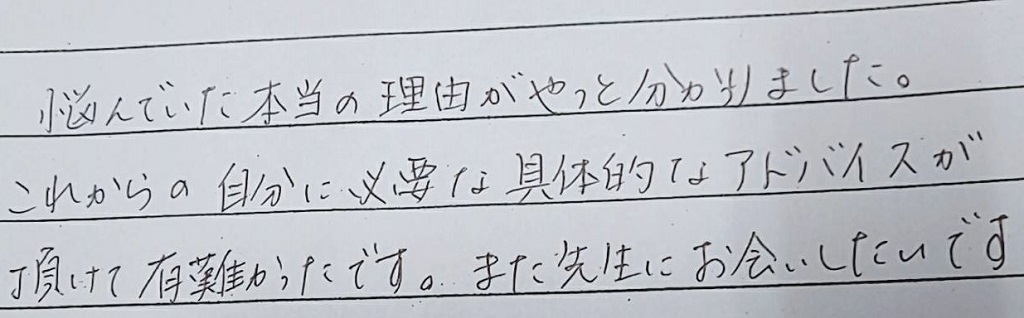 悩んでいた本当の理由がやっと分かりました。
これからの自分に必要な具体的なアドバイスが
頂けて有難かったです。また先生にお会いしたいです